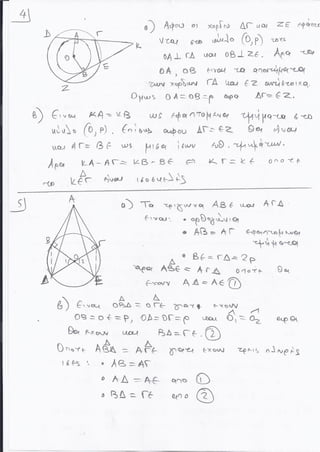 4)
α) Αφού οι χορδές ΔΓ και ΖΕ εφάπτο
νται στο κύκλο (Ο,ρ) τότε
ΟΑ ⊥ ΓΔ και ΟΒ ⊥ ΖΕ. Άρα τα
ΟΑ, ΟΒ είναι τα αποστήματα
των χορδών ΓΔ και ΕΖ αντίστοιχα.
Όμως ΟΑ = ΟΒ = ρ άρα ΔΓ = ΕΖ.
β) Είναι ΚΑ = ΚΒ ως εφαπτόμενα τμήματα στο
κύκλο (Ο,ρ). Επίσης αφού ΔΓ = ΕΖ θα είναι
και ΑΓ = ΒΕ ως μισά ίσων ευθ. τμημάτων.
Άρα ΚΑ - ΑΓ = ΚΒ - ΒΕ ⇔ ΚΓ = ΚΕ οπότε
το ΚΕΓ είναι ισοσκελές
5)
α) Τα τρίγωνα ΑΒΕ και ΑΓΔ
είναι: • ορθογώνια
• ΑΒ = ΑΓ εφαπτόμενα
τμήματα
• ΒΕ = ΓΔ = 2ρ
άρα ΑΒΕ = ΑΓΔ οπότε θα
έχουν ΑΔ = ΑΕ ①
β) Είναι ΟΒΔ = ΟΓΕ γιατί έχουν
ΟΒ = ΟΕ = ρ, ΟΔ = ΟΓ = ρ και Ο₁ = Ο₂ άρα
θα έχουν και ΒΔ = ΓΕ. ②
Οπότε ΑΒΔ = ΑΓΕ γιατί έχουν τρεις πλευρές
ίσες: • ΑΒ = ΑΓ
• ΑΔ = ΑΕ από ①
• ΒΔ = ΓΕ από ②